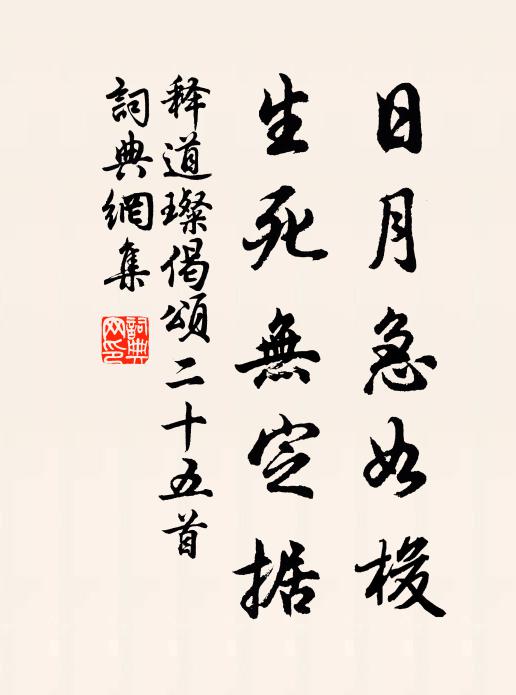 日月急如梭
生死無定据
释道璨偈頌二十五首
詞典網集
詞典網印